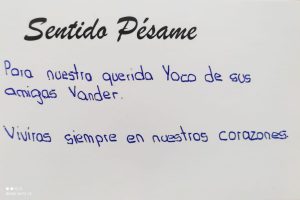 Sentido Pésame
Para nuestra querida Yoco de sus
amigas Vander.
Viviras siempre en nuestros corazones.